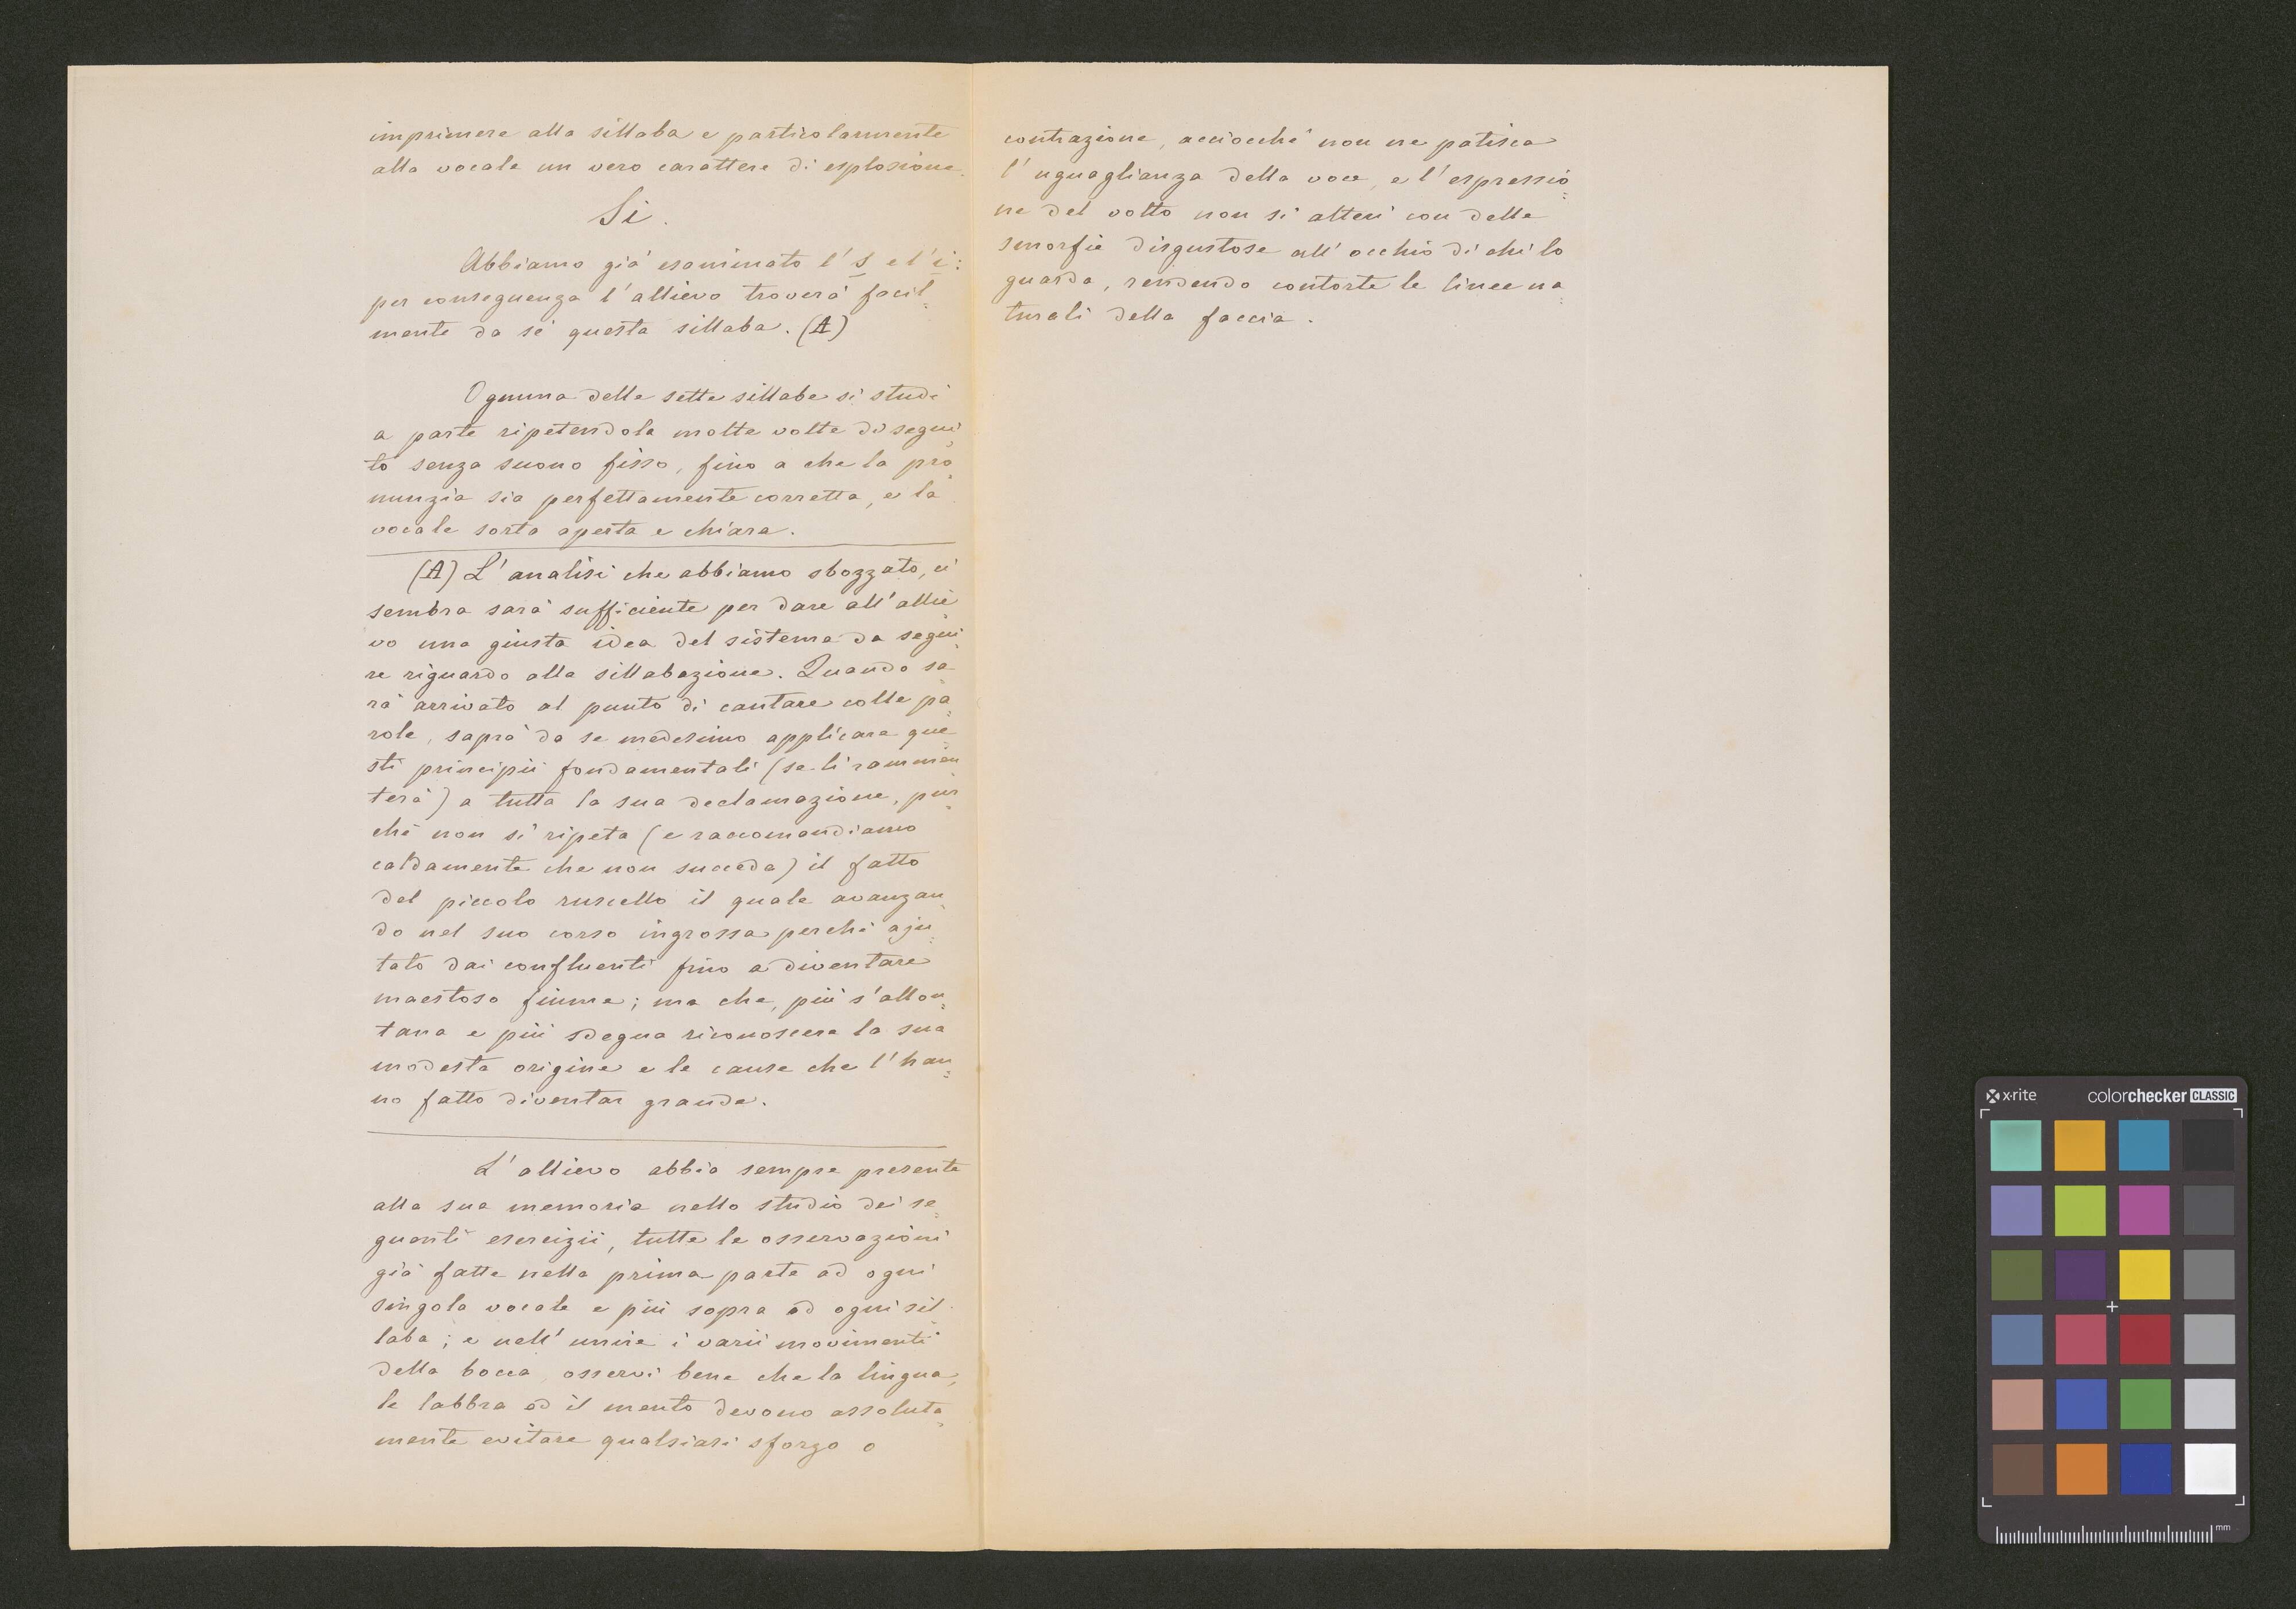 imprimere alla sillaba e particolarmente
alla vocale un vero carattere di esplosione.
Si.
Abbiamo già esaminato l's e l'i:
per conseguenza l'allievo troverà facil=
mente da sè questa sillaba. (A)
Ognuna delle sette sillabe si studi
a parte ripetendola molte volte di segui=
to senza suono fisso, fino a che la pro=
nunzia sia perfettamente corretta, e la
vocale sorta aperta e chiara.
(A) L'analisi che abbiamo sbozzato, ci
sembra sarà sufficiente per dare all'allie=
vo una giusta idea del sistema da segui=
re riguardo alla sillabazione. Quando sa=
rà arrivato al punto di cantare colle pa=
role, saprà da se medesimo applicare que=
sti principii fondamentali (se li rammen=
terà) a tutta la sua declamazione, pur=
chè non si ripeta (e raccomandiamo
caldamente che non succeda) il fatto
del piccolo ruscello il quale avanzan=
do nel suo corso ingrossa perchè aju=
tato dai confluenti fino a diventare
maestoso fiume; ma che, più s'allon=
tana e più sdegna riconoscere la sua
modesta origine e le cause che l'han=
no fatto diventar grande.
L'allievo abbia sempre presente
alla sua memoria nello studio dei se=
guenti esercizii, tutte le osservazioni
già fatte nella prima parte ad ogni
singola vocale e più sopra ad ogni sil=
laba; e nell'unire i varii movimenti
della bocca osservi bene che la lingua,
le labbra ed il mento devono assoluta=
mente evitare qualsiasi sforzo o
contrazione, acciocchè non ne patisca
l'uguaglianza della voce, e l'espressio=
ne del volto non si alteri con delle
smorfie disgustose all'occhio di chi lo
guarda, rendendo contorte le linee na=
turali della faccia.
x·rite
colorchecker CLASSIC
mm